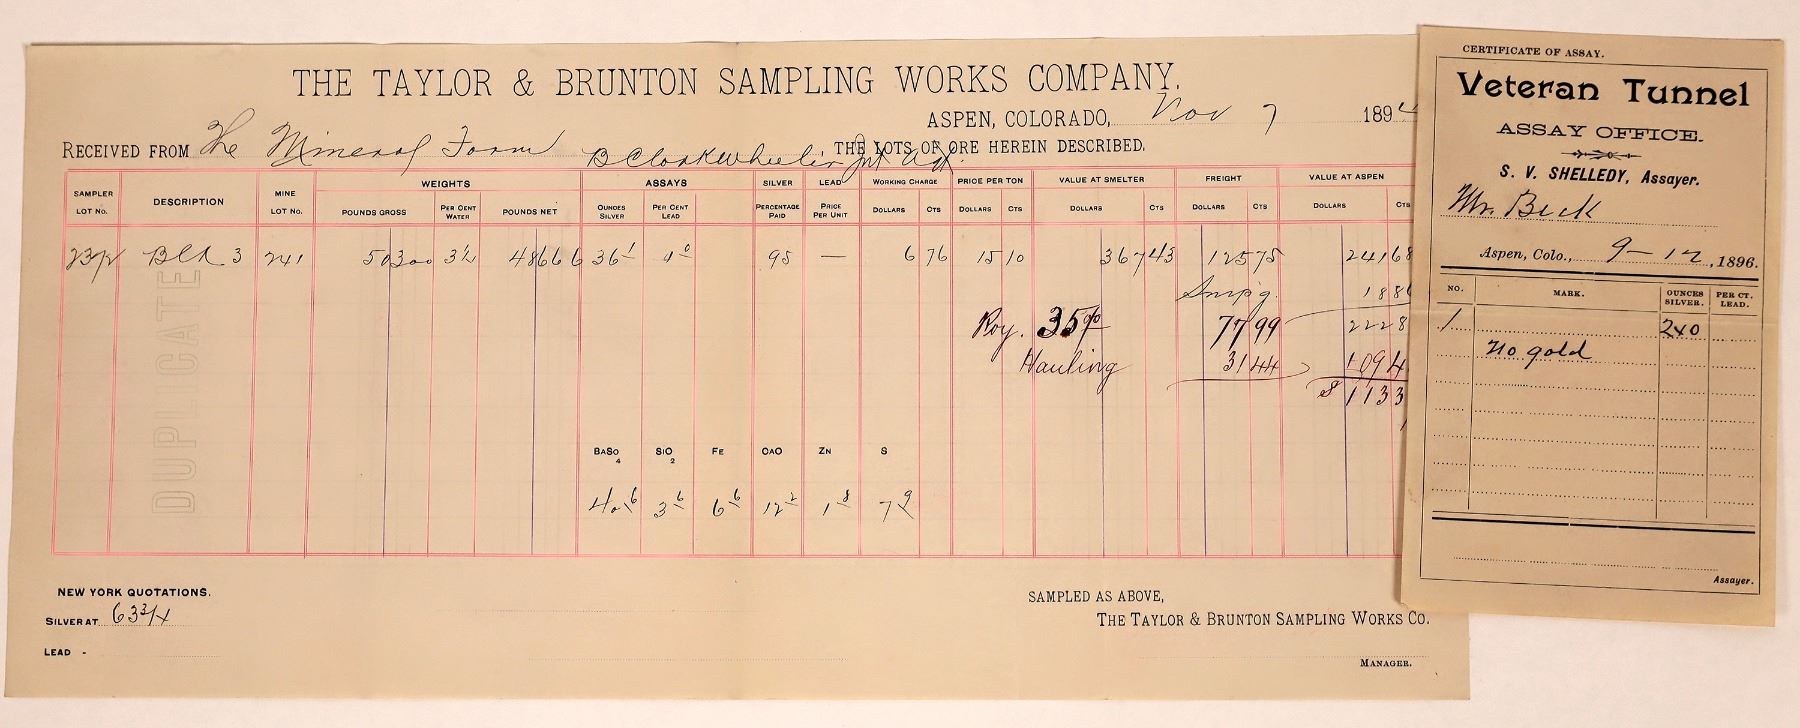 THE TAYLOR & BRUNTON SAMPLING WORKS COMPANY.
ASPEN, COLORADO, Nov 7 1894
RECEIVED FROM The Mineral Farm B Clark Wheeler THE LOTS OF ORE HEREIN DESCRIBED.
SAMPLER LOT No. DESCRIPTION MINE LOT No. WEIGHTS POUNDS GROSS PER CENT WATER POUNDS NET ASSAYS OUNCES SILVER PER CENT LEAD SILVER PERCENTAGE PAID LEAD PRICE PER UNIT WORKING CHARGE DOLLARS CTS PRICE PER TON DOLLARS CTS VALUE AT SMELTER DOLLARS CTS FREIGHT DOLLARS CTS VALUE AT ASPEN DOLLARS CTS
3 241 50300 3½ 48666 36 1 95 — 6 76 15 10 367 43 125 75 241 68
Smp'g. 188
Roy. 35% 77 99 222 8
Hauling 31 44 109 4
$ 113 3
DUPLICATE
BASO4 SIO2 FE CAO ZN S
40 6 3 6 6 6 12 2 1 8 7 9
NEW YORK QUOTATIONS.
SILVER AT 63 3/4
LEAD -
SAMPLED AS ABOVE,
THE TAYLOR & BRUNTON SAMPLING WORKS CO.
MANAGER.
CERTIFICATE OF ASSAY.
Veteran Tunnel
ASSAY OFFICE.
S. V. SHELLEDY, Assayer.
Mr. Beck
Aspen, Colo., 9-12, 1896.
NO. MARK. OUNCES SILVER. PER CT. LEAD.
1 240
No gold
Assayer.